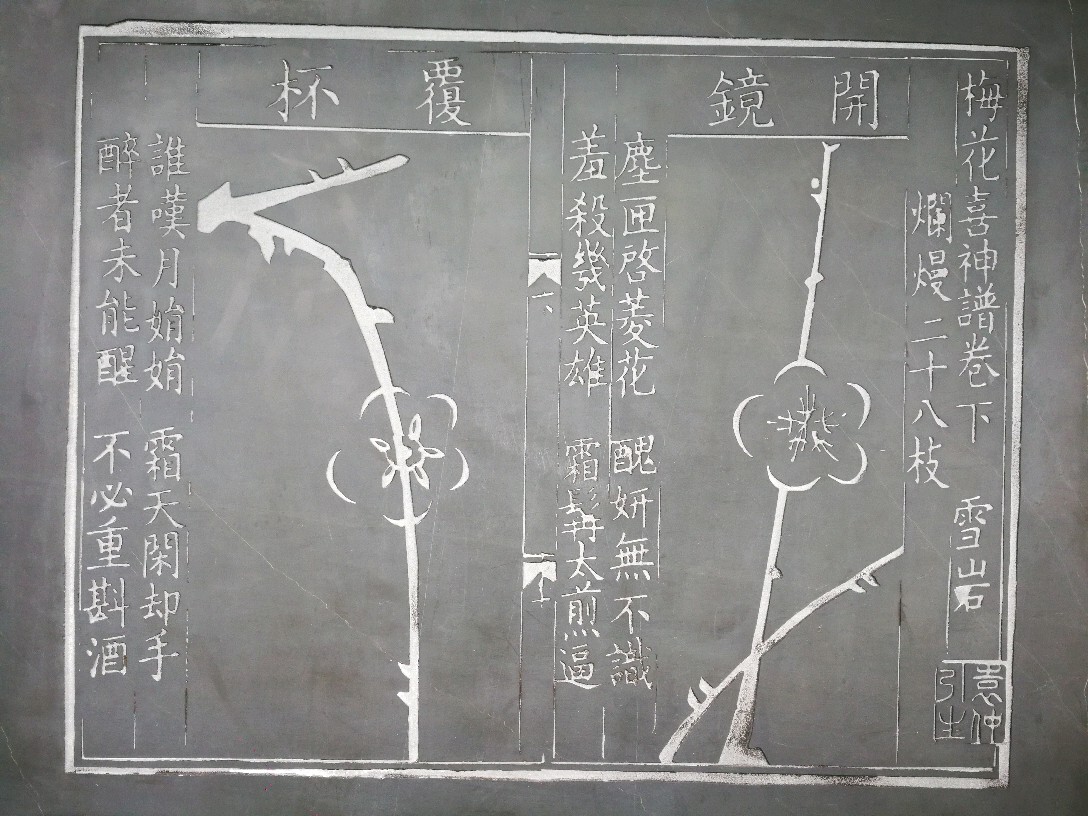 梅花喜神譜卷下 雪岩
爛熳二十八枝
開鏡
塵匣啓菱花 醜妍無不識
羞殺幾英雄 霜髯太煎逼
覆杯
誰嘆月娟娟 霜天閑却手
醉者未能醒 不必重斟酒